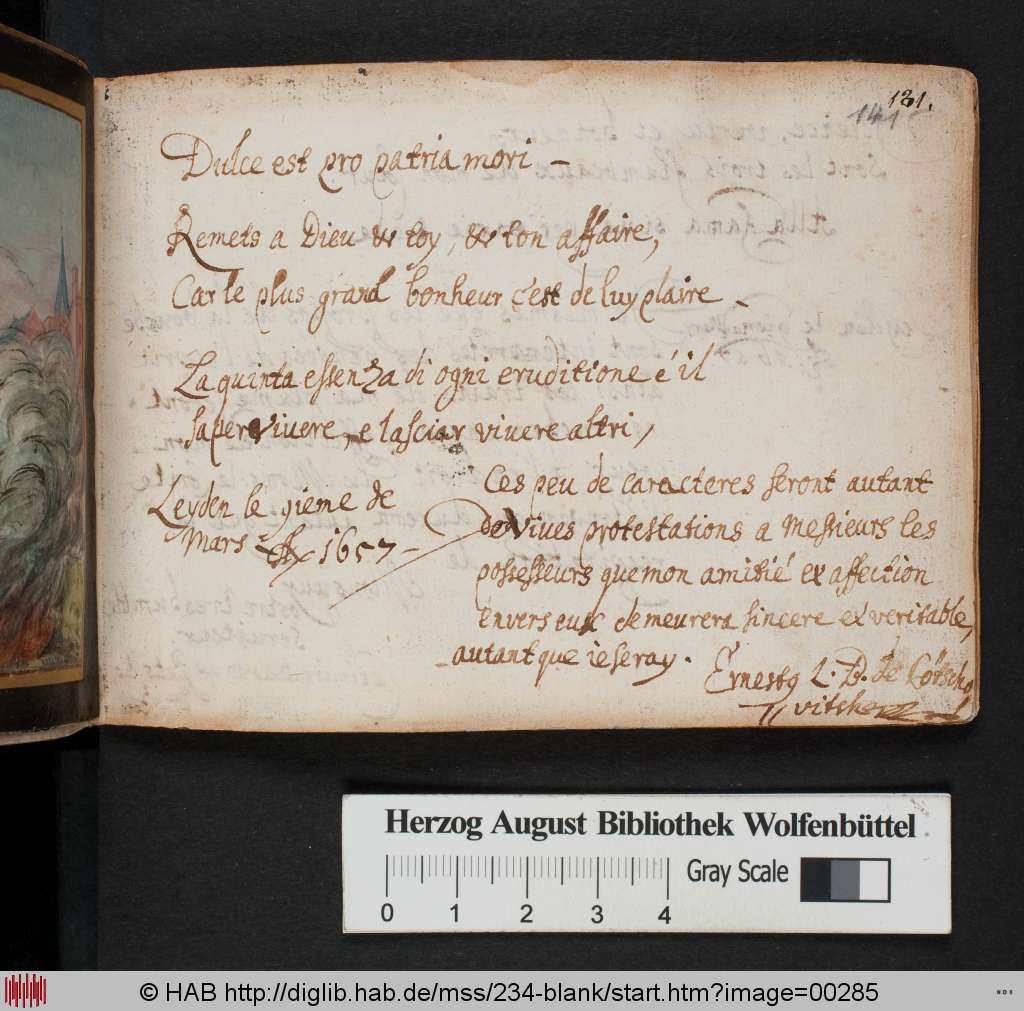 131.
141
Dulce est pro patria mori –
Remets a Dieu & toy, & ton affaire,
Car le plus grand bonheur c'est de luy plaire.
La quinta essenza di ogni eruditione é il
saper vivere, e lasciar vivere altri,
Leyden le 9ieme de
Mars 1657 –
Ces peu de caracteres seront autant
de vives protestations a Messieurs les
possesseurs que mon amitié et affection
envers eux demeurera sincere et veritable,
autant que ie seray.
Ernestq L. B. de
Herzog August Bibliothek Wolfenbüttel
Gray Scale
0 1 2 3 4
© HAB http://diglib.hab.de/mss/234-blank/start.htm?image=00285